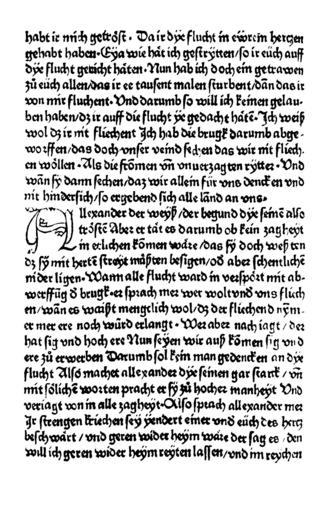 habt ir mich getröst. Da ir dye flucht in ewrem hertzen
gehabt haben. Eya wie hät ich gestrytten/so ir euch auff
dye flucht gericht häten. Nun hab ich doch ein getrawen
zů euch allen/das ir ee tausent malen sturbent/dan das ir
von mir fluchent. Vnd darumb so will ich keinen gelau-
ben haben/dz ir auff die flucht ye gedacht håtē. Ich weiß
wol dz ir nit fliechent Ich hab die brugk darumb abge-
worffen/das doch vnser veind sechen das wir nit fliech-
en wöllen. Als die frömen vn̄ vnuerzagten rytter. Vnd
wān sy dann sechen/daz wir allein für vns dencken vnd
nit hindersich/so ergebend sich alle länd an vns.
Allexander der weyß/der begund dye seinē also
trösten Aber er tät es darumb ob kein zagheyt
in etlichen kōmen wäre/das sy doch weßten
dz sy mit hertē streyt müßten besigen/od̄ aber schentlichē
nider ligen. Wann alle flucht ward in verspört mit ab-
werffūg d̄ brugk. er sprach mer wer wolt vnd vns fliech
en/wān es waißt mengclich wol/dz der fliechend nym̄-
er mer ere noch würd erlangt. Wer aber nach iagt/der
hat sig vnd hoch ere Nun seyen wir auß kōmen sig vnd
ere zů erwerben Darumb sol kein man gedencken an dye
flucht Also machet allexander dye seinen gar starck/vn̄
mit sölichē worten pracht er sy zů hocher manheyt Vnd
veriagt von in alle zagheyt. Also sprach allexander mer
Ir strengen kriechen sey yendert einer vnd euch des hertz
beschwärt/vnd geren wider heym wäre der sag es/den
will ich geren wider heym reyten lassen/vnd im reychen